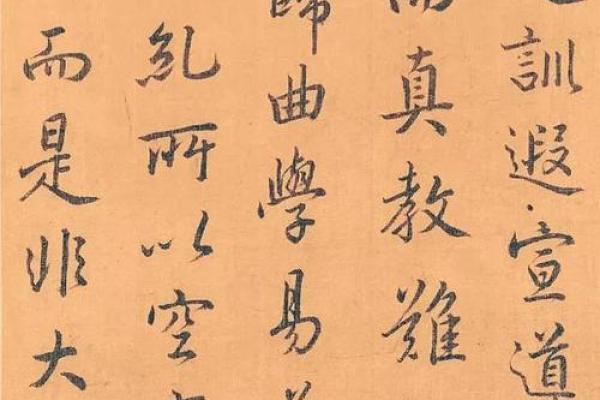 訓遐宣道
而真教難
歸曲學易
糺所以空
而是非大